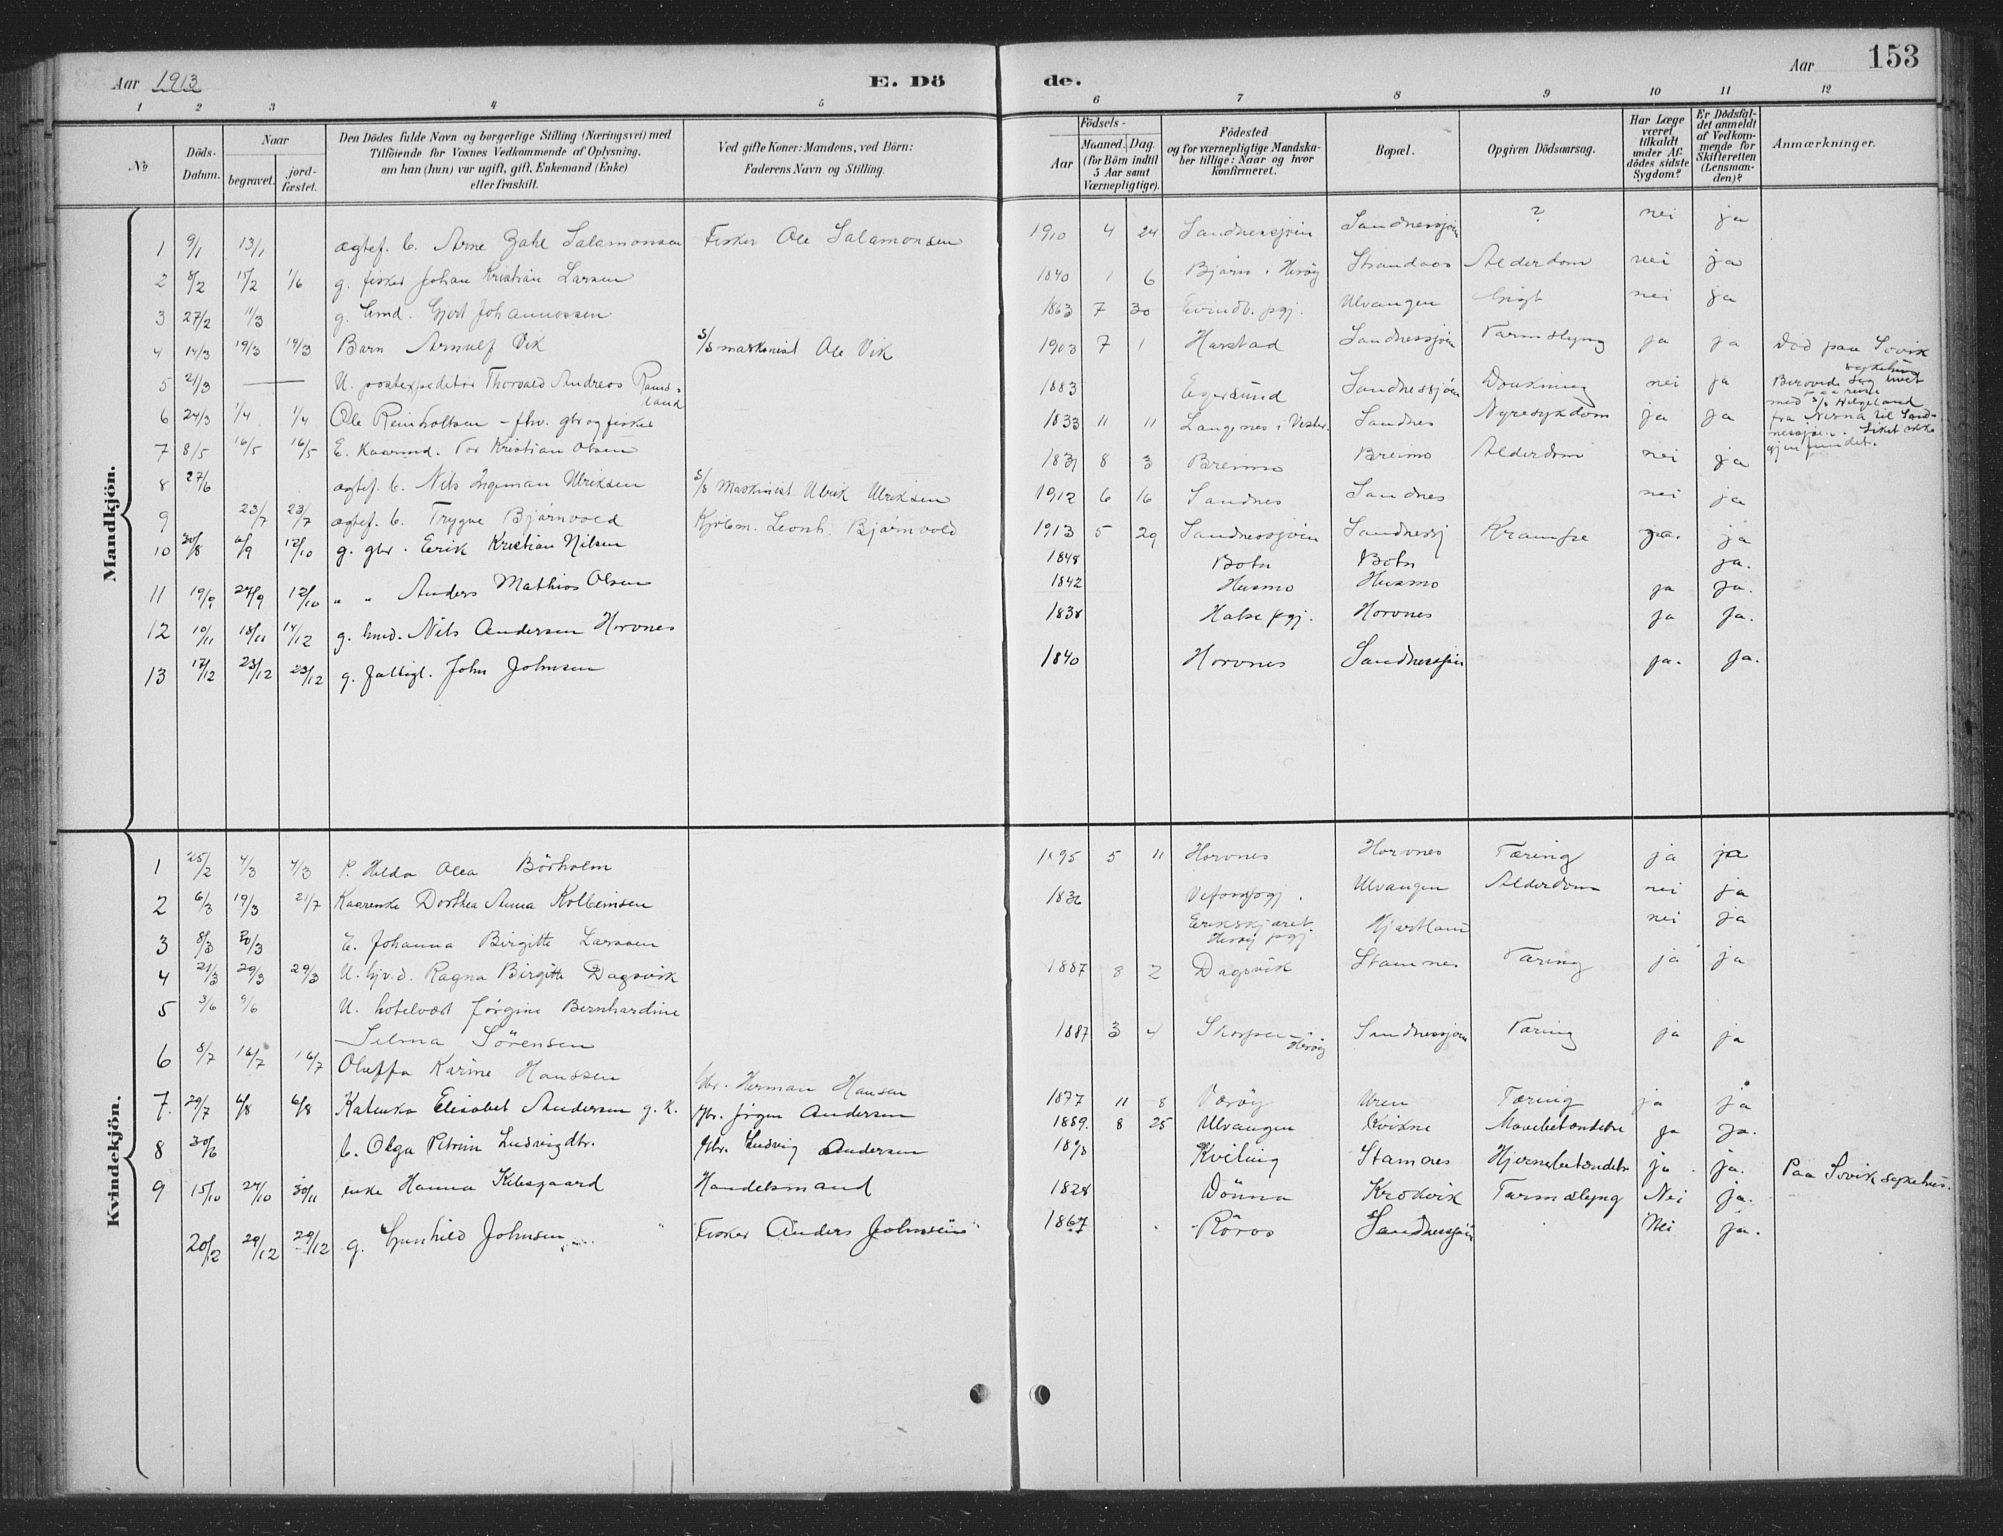 Aar 1913
E. Dö
de.
Aar
153
1 2 3 4 5 6 7 8 9 10 11 12
No
Döds-Datum.
Naar
begravet.
jord-fæstet.
Den Dödes fulde Navn og borgerlige Stilling (Næringsvei) med
Tilföiende for Voxnes Vedkommende af Oplysning.
om han (hun) var ugift, gift, Enkemand (Enke)
eller fraskilt.
Ved gifte Koner: Mandens, ved Börn:
Faderens Navn og Stilling.
Födsels-
Aar
Maaned. Dag.
(for Börn indtil
5 Aar samt
Værnepligtige).
Födested
og for værnepligtige Mandska-
ber tillige: Naar og hvor
konfirmeret.
Bopæl.
Opgiven Dödsaarsag.
Har Læge
været
tilkaldt
under Af-
dödes sidste
Sygdom?
Er Dödsfal-
det anmeldt
af Vedkom-
mende for
Skifteretten
(Lensman-
den)?
Anmærkninger.
Mandkjön.
1 9/1 13/1 ægtef. b. Arne Zahl Salamonsen Fisker Ole Salamonsen 1910 4 24 Sandnessjöen Sandnessjöen ? nei ja
2 8/2 15/2 1/6 g. fisker Johan Kristian Larsen 1840 1 6 Bjärn i Heröy Strandaas Alderdom nei ja
3 27/2 11/3 g. Gjert Johannessen 1863 7 30 Evindv. pgj. Ulvangen Gigt nei ja
4 14/3 19/3 19/3 Barn Arnulf Vik S/S maskinist Ole Vik 1903 7 1 Harstad Sandnessjöen Tarmslyng ja ja Död paa Sovik sykehus
5 21/3 — U. postexpeditör Thorvald Andreas Rams-
land 1883 Egersund Sandnessjöen Drukning nei ja Berövede seg livet
paa reise
med S/S Helgeland
fra Nesna til Sand-
nessjöen. Liket ikke
gjenfundet.
6 24/3 1/4 1/4 Ole Reinholtsen – fhv. gbr og fisker 1833 11 11 Langenes i Vester. Sandnes Nyresykdom ja ja
7 8/5 16/5 16/5 E. kaarmd. Tor Kristian Olsen 1831 8 3 Breimo Breimo Alderdom nei ja
8 27/6 ægtef. b. Nils Ingeman Ulriksen S/S Maskinist Ulrik Ulriksen 1912 6 16 Sandnes Sandnes nei ja
9 23/7 23/7 ægtef. b. Trygve Bjørnvold Kjöbm. Leonh. Bjørnvold 1913 5 29 Sandnessjöen Sandnessj Krampe ja. ja
10 30/8 6/9 12/10 g. gbr. Eerik Kristian Nilsen 1848 Botn Botn ja.
11 19/9 27/9 12/10 „ „ Anders Mathias Olsen 1842 Husmo Husmo ja ja.
12 10/11 18/11 14/12 g. hmd. Nils Andersen Horvnes 1838 Halse pgj. Horvnes ja ja.
13 17/12 23/12 23/12 g. fattigl. John Johnsen 1840 Horvnes Sandnessjöen ja. ja.
Kvindekjön.
1 25/2 4/3 4/3 P. Hilda Olea Börholm 1895 5 11 Horvnes Horvnes Tæring ja ja
2 6/3 19/3 21/7 Kaarenke Dorthea Anna Kolbeinsen 1836 Vefsnpgj. Ulvangen Alderdom nei ja
3 8/3 20/3 E. Johanna Birgitte Larssen Erikskjæret.
Heröy pgj Hjartland nei ja
4 21/3 29/3 29/3 U. hjv.d. Ragna Birgitte Dagsvik 1887 8 2 Dagsvik Stamnes Tæring ja ja
5 3/6 9/6 U. hotelvært Jørgine Bernhardine
Selma Sörensen 1887 3 4 Skorpen –
Heröy Sandnessjöen Tæring ja ja
6 8/7 16/7 16/7 Oluffa Karine Hanssen Gbr. Herman Hansen 1877 11 8 Værøy Uren Tæring ja ja
7. 29/7 6/8 6/8 Katinka Elisabet Andersen g. k. Gbr. Jörgen Andersen 1889. 8 25 Ulvangen Kvikne Mavebetændelse ja ja.
8 30/6 b. Olga Petrine Ludvigdtr. Gbr. Ludvig Andersen Kviting Stamnes Hjernebetændelse ja. ja. Paa Sovik sykehus.
9 15/10 27/10 30/11 enke Hanna Kilsgaard Handelsmand 1828 Dönna Krokvik Tarmslyng Nei ja.
20/12 29/12 29/12 g. Gunhild Johnsen Fisker Anders Johnsen 1867 Röros Sandnessjöen Nei ja.